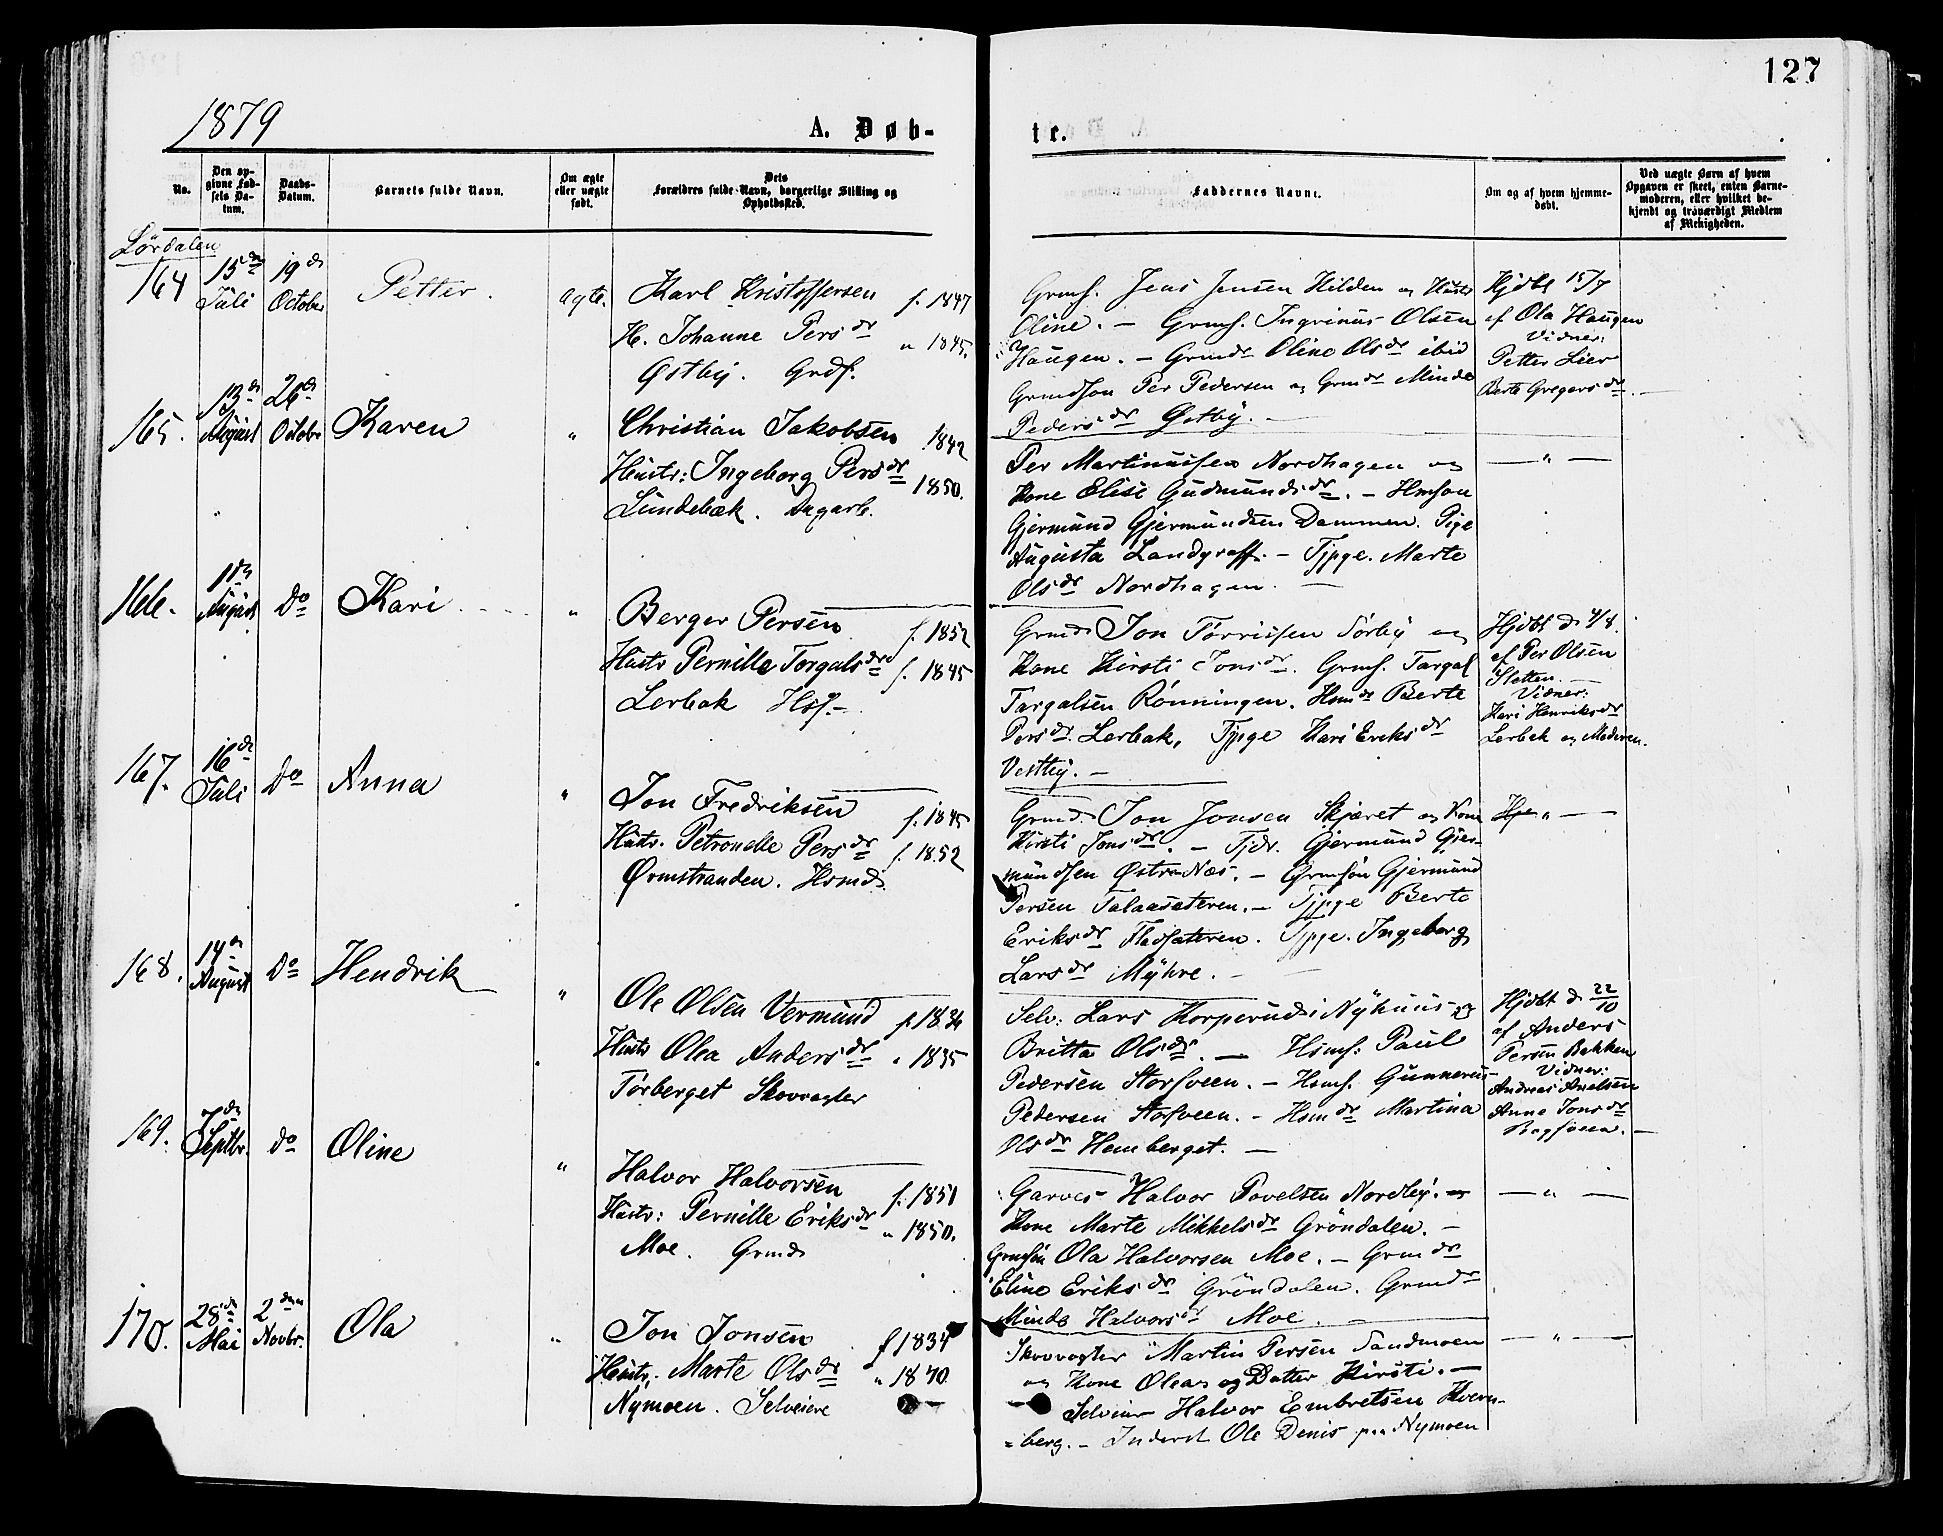 127
1879
A. Døb-
ter.
No.
Den op-
givne Fød-
sels Da-
tum.
Daabs-
Datum.
Barnets fulde Navn.
Om ægte
eller uægte
født.
Dets
Forældres fulde Navn, borgerlige Stilling og
Opholdssted.
Faddernes Navne.
Om og af hvem hjemme-
døbt.
Ved uægte Børn af hvem
Opgaven er skeet, enten Barne-
moderen, eller hvilket be-
kjendt og troværdigt Medlem
af Menigheden.
Lördalen
164
15de
Juli
19de
October
Petter.
ægte.
Karl Kristoffersen f. 1847
H. Johanne Persdr " 1845.
Østby. Grdf.
Grmf. Jens Jensen Hilden og Hustr
Oline. – Grmf. Ingrinus Olsen
Haugen. – Grmdr Oline Olsdr ibid
Grmdsøn Per Pedersen og Grmdr Minda
Pedersdr Østby. –
Hjdbt 15/7
af Ola Haugen
Vidner:
Petter Lier
Berte Gregersdr. –
165.
13de
August
26de
Octobr
Karen
"
Christian Jakobsen 1842
Hustr: Ingeborg Persdr 1850.
Lundebæk. Dagarb.
Per Martinussen Nordhagen og
Kone Elise Gudmundsdr. – Hmsøn
Gjermund Gjermundsen Dammen. Pige
Augusta Landgraff. – Tjpge. Marte
Olsdr Nordhagen. –
— " —
166.
1ste
August
Do
Kari
"
Berger Persen f. 1852
Hustr Pernille Torgalsdr f. 1845
Lerbak Hsf. –
Grmd Jon Törrissen Sörby og
Kone Kirsti Jonsdr. Grmf. Targal
Targalsen Rønningen. Hsmdr Berte
Persdr. Lerbak, Tjpge Kari Eriksdr
Vestby. –
Hjdbt d 4/8.
af Per Olsen
Sletten. –
Vidner:
Kari Henriksdr
Lerbek og Moderen.
167.
16de
Juli
Do
Anna
"
Jon Fredriksen f. 1845
Hustr. Petronelle Persdr f. 1852
Ørmstranden. Hsmd.
Grmd. Jon Jonsen Skjæret og Kone
Kirsti Jonsdr. – Tjdr. Gjermund Gjer-
mundsen Østre Næs. – Grmsøn Gjermund
Persen Talaasæteren. – Tjpge Berte
Eriksdr Fladsæteren. Tjpge. Ingeborg
Larsdr Myhre. –
" —
168.
14de
August
Do
Hendrik
"
Ole Olsen Vermund f. 1836
Hustr Olea Andersdr " 1835
Törberget Skovvogter
Selv: Lars Korperud i Nyhuus og
Britta Olsdr. — Hsmf: Paul
Pedersen Storsveen. – Hsmf. Gunnerus
Pedersen Storsveen. – Hsmdr Martina
Olsdr Hemberget. –
Hjdbt d 22/10
af Anders
Persen Bakken
Vidner:
Andreas Axelsen
Anne Jonsdr
169.
7de
Septbr.
do
Oline
"
Halvor Halvorsen f. 1851
Hustr: Pernille Eriksdr " 1850.
Moe. Grmd
Garver Halvor Povelsen Nordby. og
Kone Marte Mikkelsdr Gröndalen. –
Grmsøn Ola Halvorsen Moe. – Grmdr
Eline Eriksdr Gröndalen. Grmdr
Minda Halvorsdr Moe. –
— " —
170.
28de
Mai
2den
Novbr.
Ola
"
Jon Jonsen f 1834
Hustr. Marte Olsdr " 1840
Nymoen. Selveiere
Skovvogter Martin Persen Sandmoen
og Kone Olea og Datter Kirsti. –
Selveier Halvor Embretsen Kvern-
berg. – Inderst Ole Denis paa Nymoen
— " —